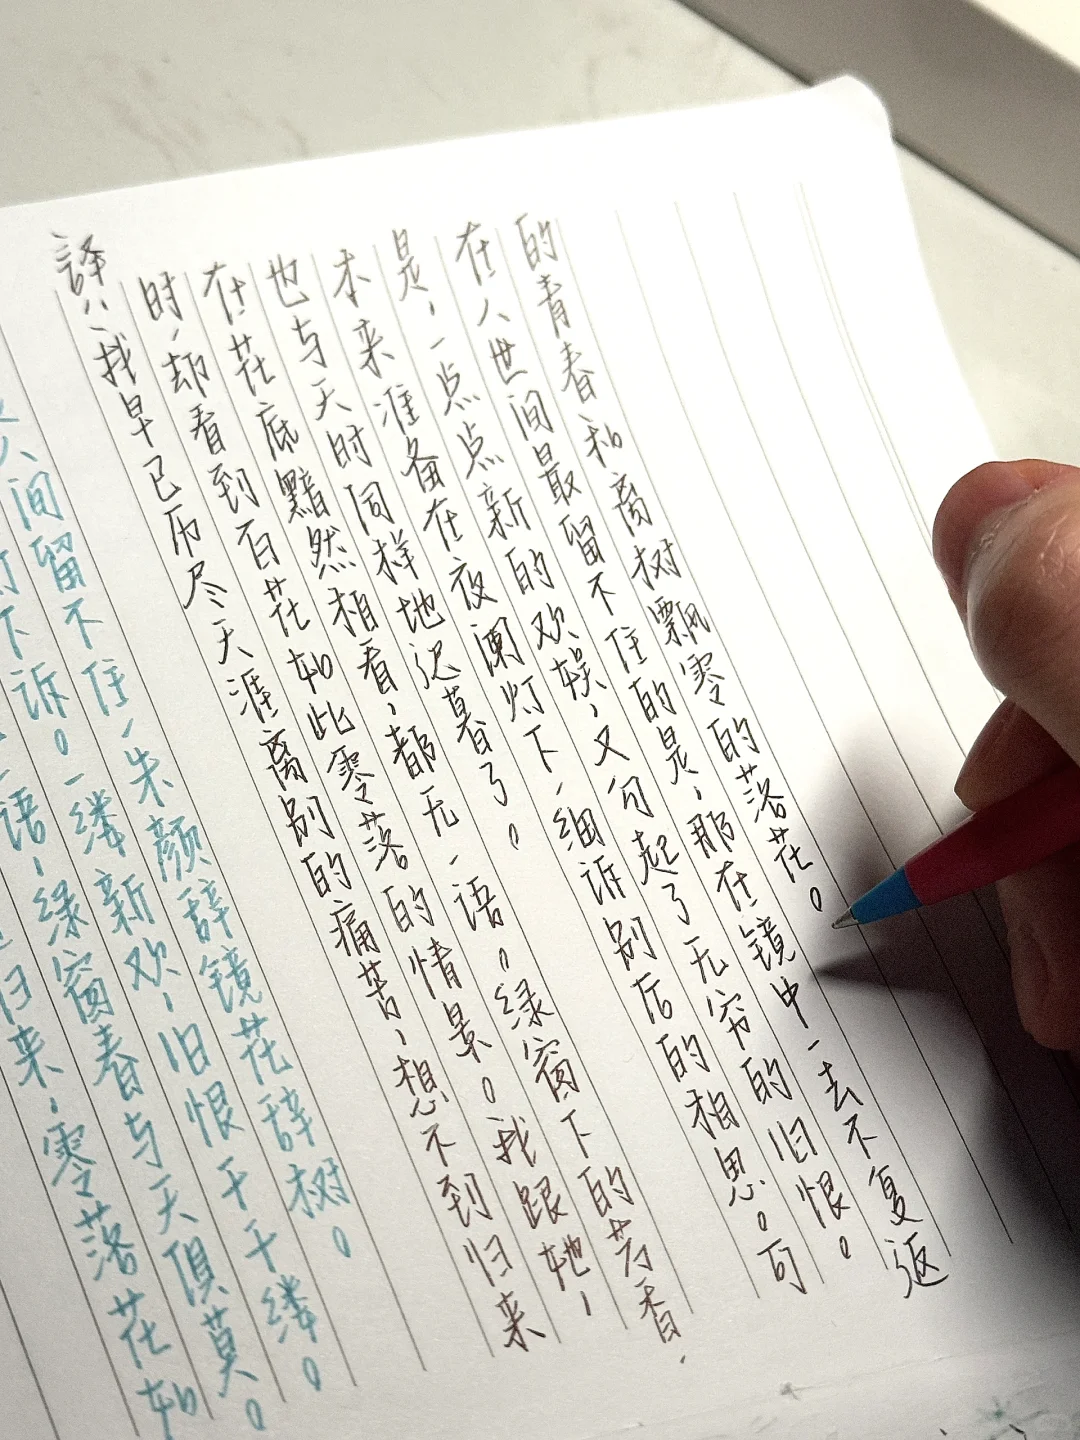 归来，零落花如
语，绿窗春与天俱莫。
灯下诉。一缕新欢，旧恨千千缕。
人间留不住，朱颜辞镜花辞树。
譯：我早已历尽天涯离别的痛苦，想不到归来
时，却看到百花如此零落的情景。我跟她，
在花底黯然相看，都无一语。绿窗下的芳香，
也与天时同样地迟暮了。
本来准备在夜阑灯下，细诉别后的相思。可
是，一点点新的欢娱，又勾起了无穷的旧恨。
在人世间最留不住的是，那在镜中一去不复返
的青春和离树飘零的落花。